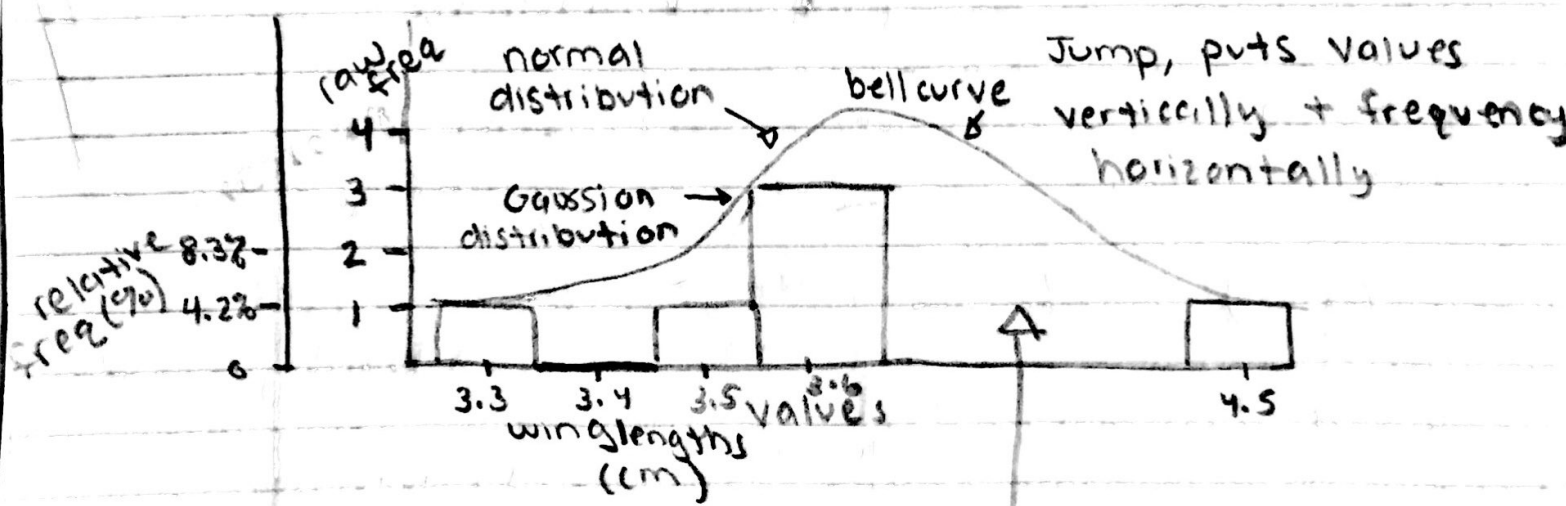 raw freq
normal
distribution
bell curve
Jump, puts values
vertically + frequency
horizontally
4
3
Gaussion
distribution
2
1
relative
freq (%)
8.3%
4.2%
0
3.3
3.4
3.5
3.6
4.5
values
winglengths
(cm)